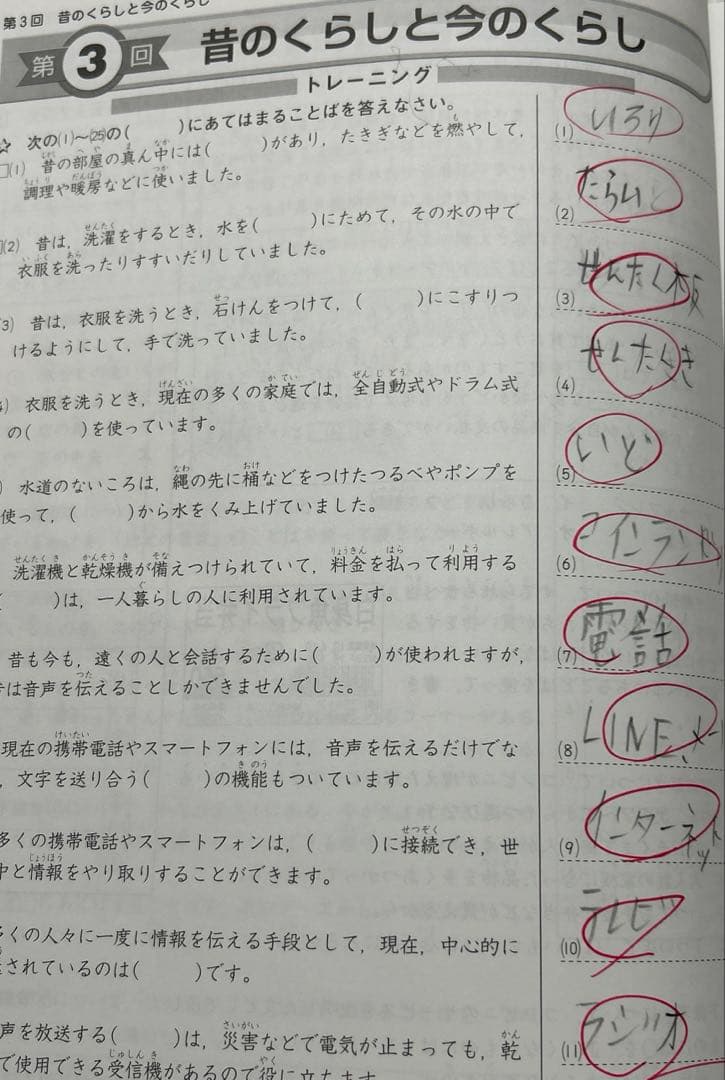 第3回 昔のくらしと今のくらし
第3回 昔のくらしと今のくらし
トレーニング
☆ 次の⑴〜㉕の( )にあてはまることばを答えなさい。
□⑴ 昔の部屋の真ん中には( )があり，たきぎなどを燃やして，
調理や暖房などに使いました。
⑵ 昔は，洗濯をするとき，水を( )にためて，その水の中で
衣服を洗ったりすすいだりしていました。
3) 昔は，衣服を洗うとき，石けんをつけて，( )にこすりつ
けるようにして，手で洗っていました。
衣服を洗うとき，現在の多くの家庭では，全自動式やドラム式
の( )を使っています。
水道のないころは，縄の先に桶などをつけたつるべやポンプを
使って，( )から水をくみ上げていました。
洗濯機と乾燥機が備えつけられていて，料金を払って利用する
( )は，一人暮らしの人に利用されています。
昔も今も，遠くの人と会話するために( )が使われますが，
は音声を伝えることしかできませんでした。
現在の携帯電話やスマートフォンには，音声を伝えるだけでな
，文字を送り合う( )の機能もついています。
多くの携帯電話やスマートフォンは，( )に接続でき，世
中と情報をやり取りすることができます。
多くの人々に一度に情報を伝える手段として，現在，中心的に
されているのは( )です。
声を放送する( )は，災害などで電気が止まっても，乾
で使用できる受信機があるので役に立ちます
⑴ いろり
⑵ たらい
⑶ せんたく板
⑷ せんたくき
⑸ いど
⑹ コインランド
⑺ 電話
⑻ LINE、メー
⑼ インターネット
⑽ テレビ
⑾ ラジオ